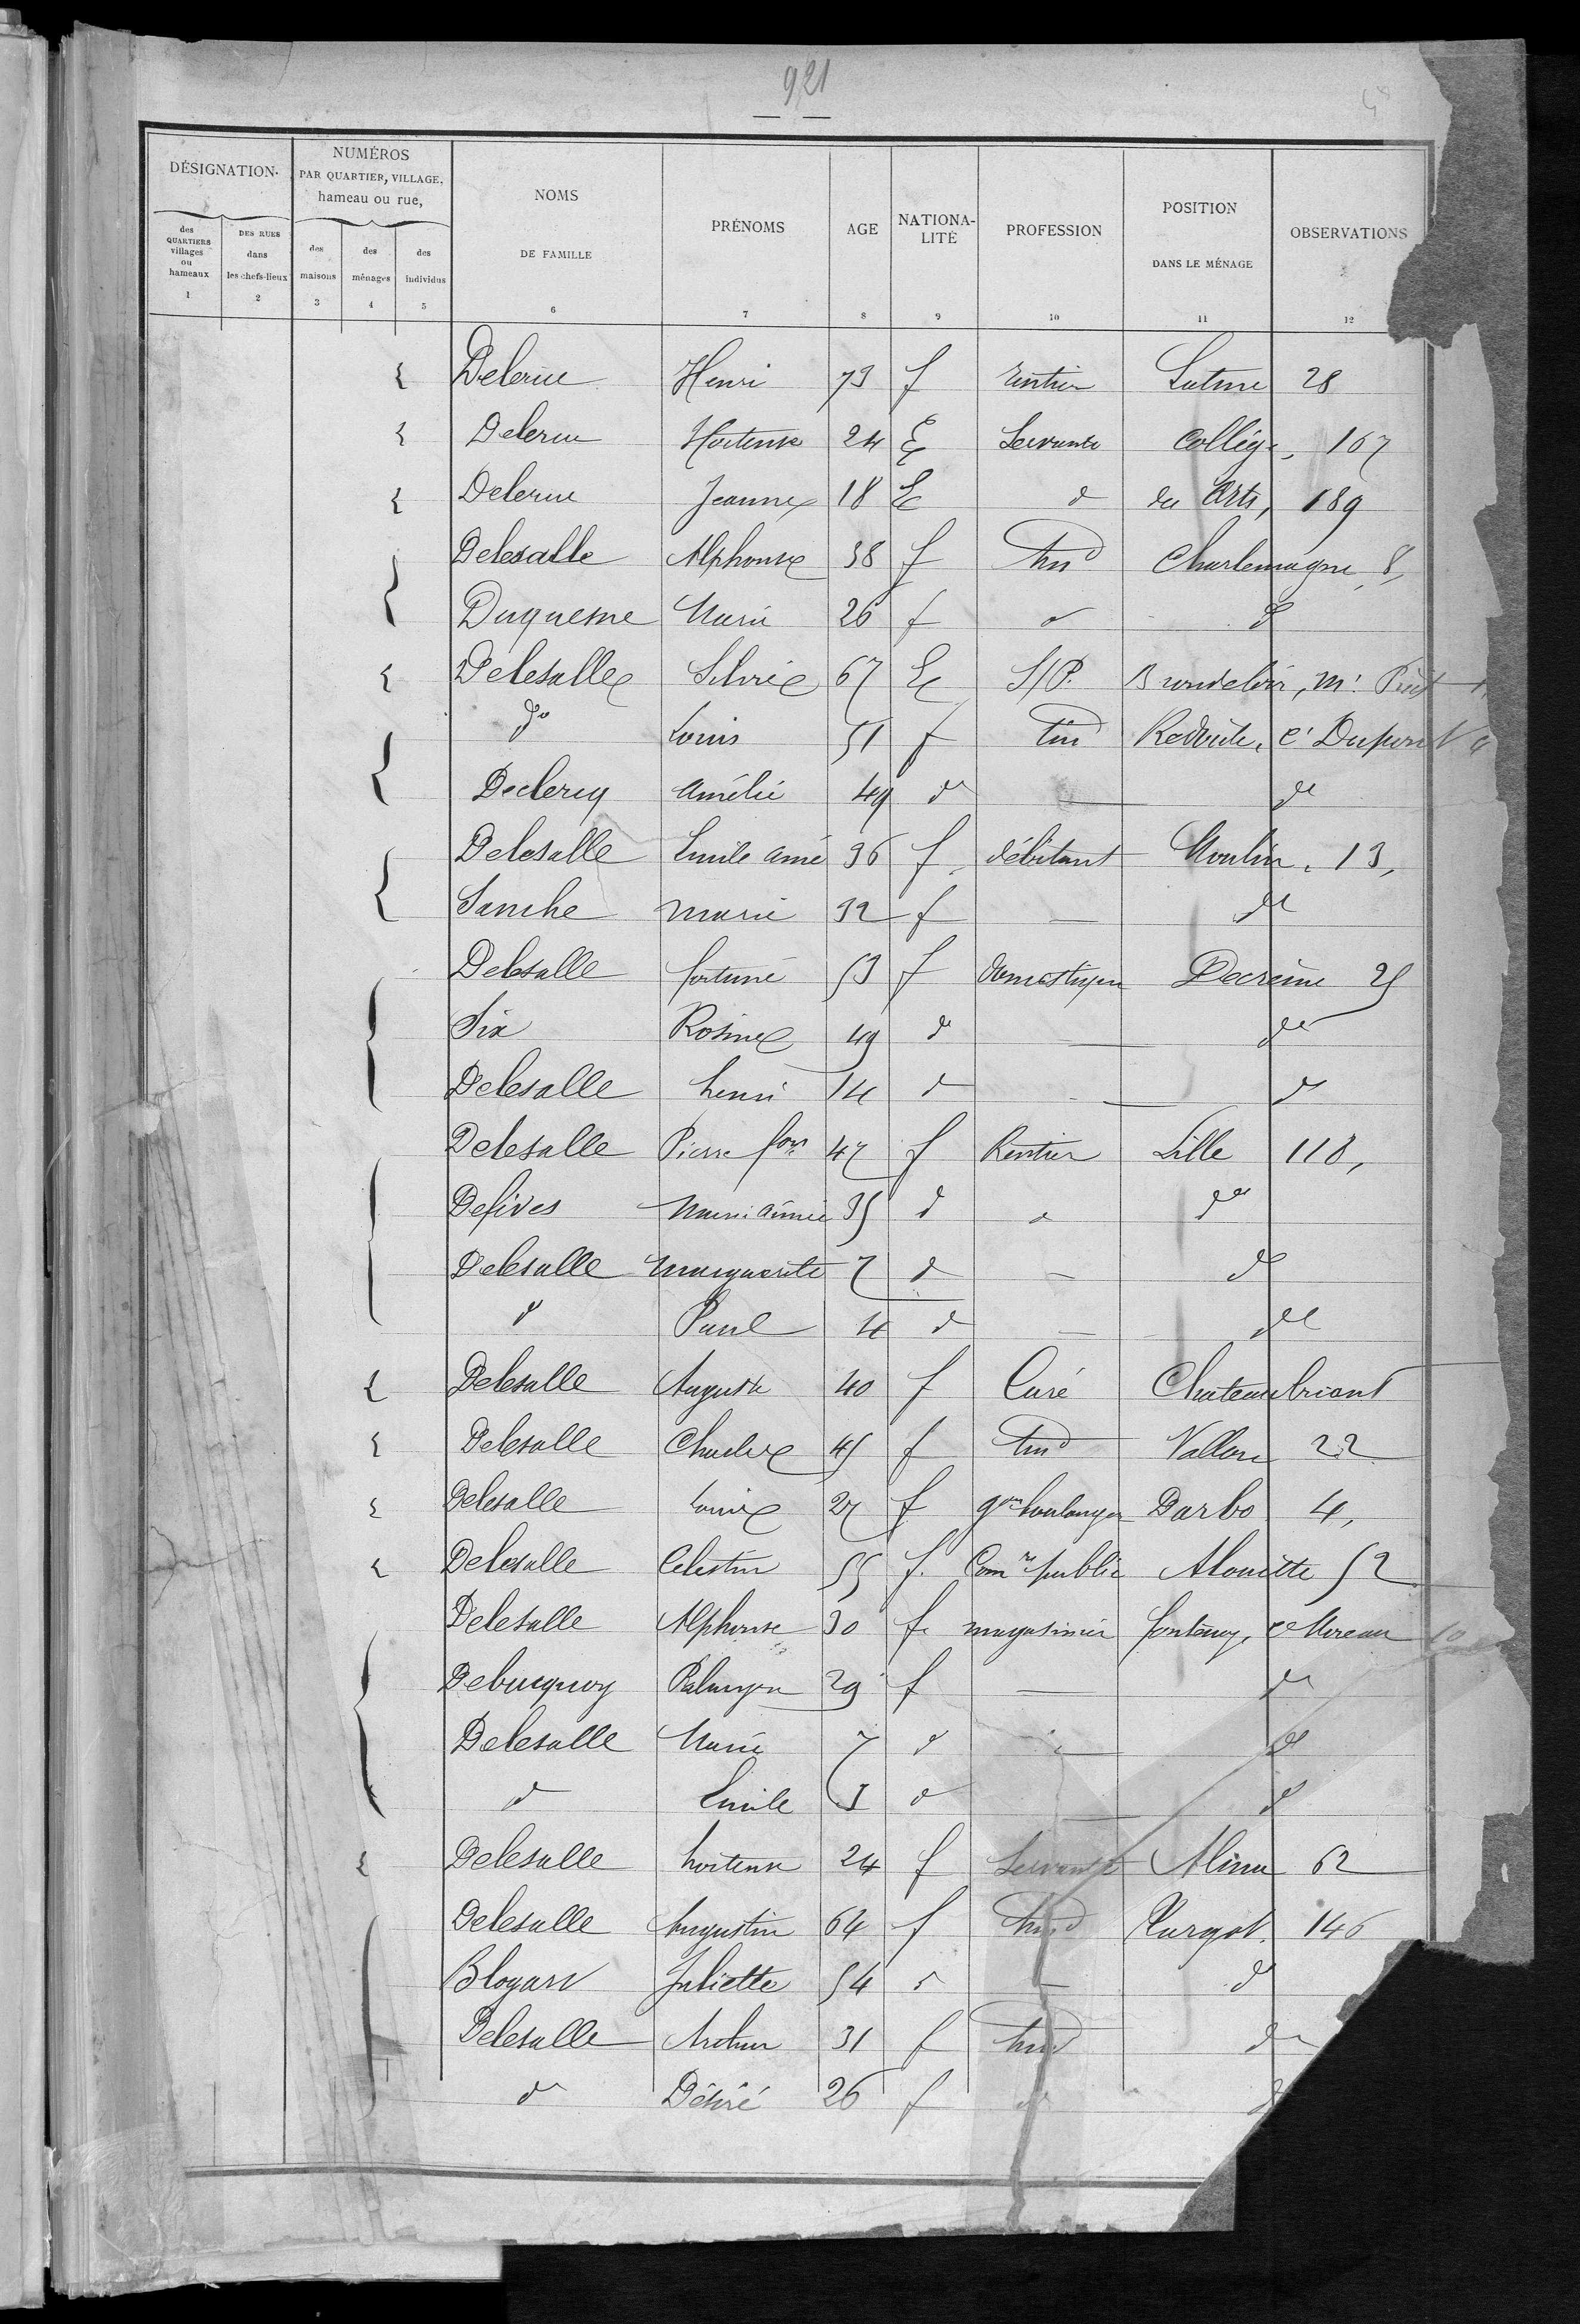 921
DÉSIGNATION.
NUMÉROS
PAR QUARTIER, VILLAGE,
hameau ou rue,
NOMS
DE FAMILLE
PRÉNOMS
AGE
NATIONA-
LITÉ
PROFESSION
POSITION
DANS LE MÉNAGE
OBSERVATIONS
des QUARTIERS villages ou hameaux
DES RUES dans les chefs-lieux
des maisons
des ménages
des individus
1 2 3 4 5 6 7 8 9 10 11 12
Delerue Henri 73 f rentier 28
Delerue Hortense 24 E Servante Collège, 167
Delerue Jeanne 18 E d des Arts, 189
Delesalle Alphonse 38 f Charlemagne 8,
Duquesne Marie 26 f d d
Delesalle Silvie 67 E S/P.
do Louis 51 f Redoute, Dupont
Declercq Amélie 49 d — do
Delesalle Emile Aimé 36 f débitant Moulin, 13,
Marie 32 f — do
Delesalle fortuné 53 f Decrême 25
Six Rosine 49 d — do
Delesalle henri 14 d — d
Delesalle Pierre fois 47 f Rentier Lille 118,
Defives Marie Aimée 35 d d do
Delesalle Marguerite 7 d — do
d Paul 4 d — do
Delesalle Auguste 40 f Curé Chateaubriant
Delesalle Charles 45 f Vallon 22
Delesalle Louis 27 f gon boulanger Darbo 4,
Delesalle Célestin 55 f. Comre public Alouette 52
Delesalle Alphonse 30 f magasinier fontenoy, Moreau 10
Debucquoy Palmyre 29 f — d
Delesalle Marie 7 d — d
d Emile 3 d — d
Delesalle hortense 24 f Servante Alma 62
Delesalle Augustin 64 f Turgot. 146
Juliette 54 — d
Delesalle Arthur 31 f d
d Désiré 26 f d d